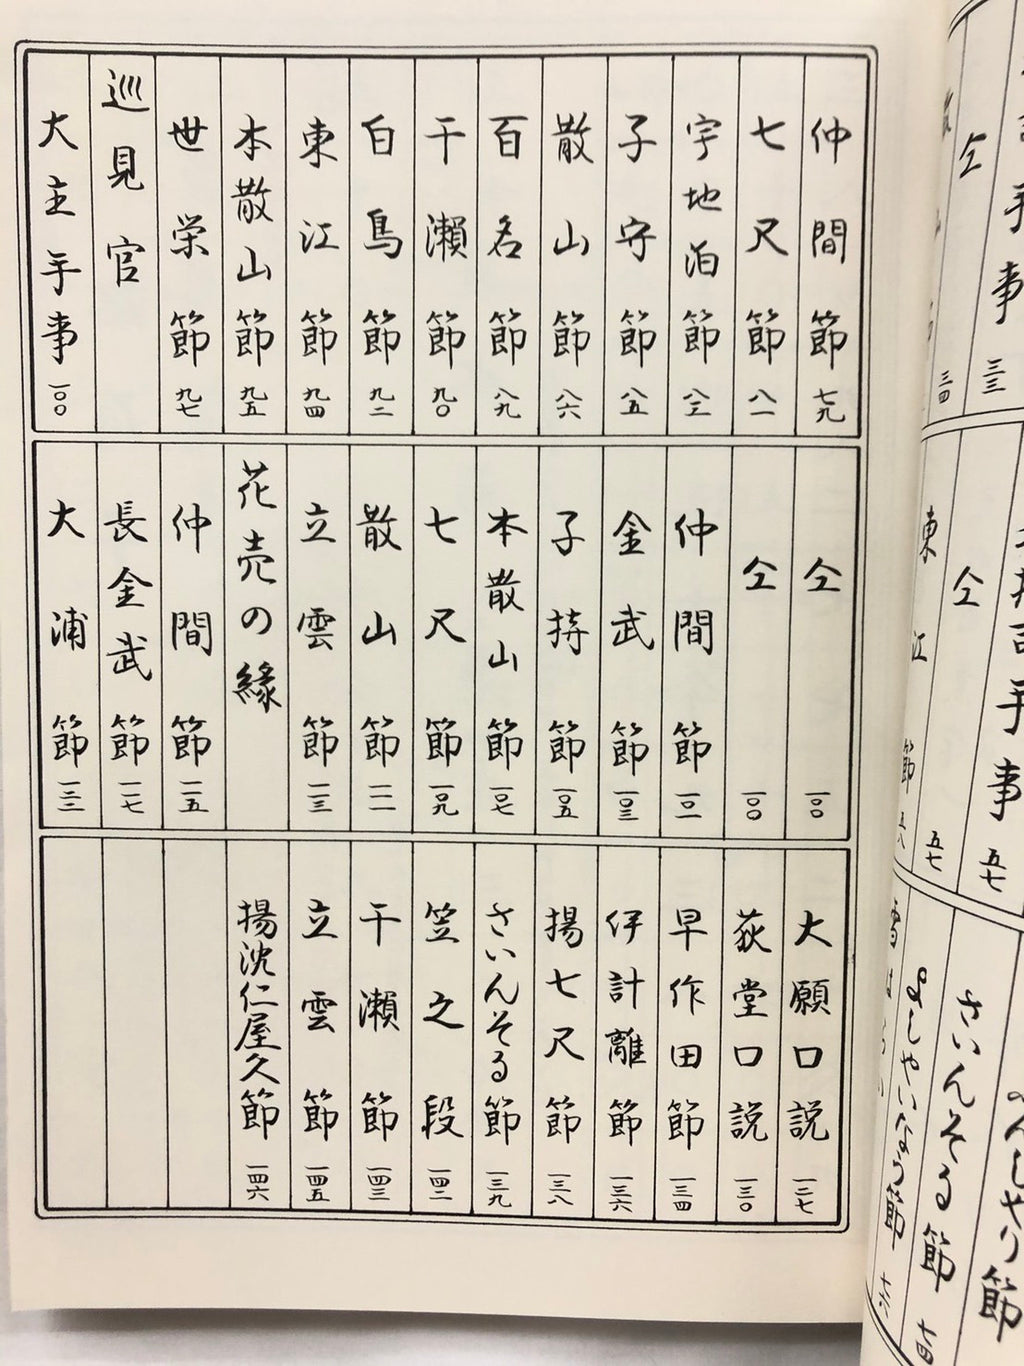 手事 三三
仝 三四
手事 五七
仝 五七
東江節 五八
さいんそる節 七四
よしやいなう節 七六
仲間節 七九
七尺節 八一
宇地泊節 八三
子守節 八五
散山節 八六
百名節 八九
干瀬節 九〇
白鳥節 九二
東江節 九四
本散山節 九五
世栄節 九七
巡見官
大主手事 一〇〇
仝 一〇〇
仝 一〇〇
仲間節 一〇二
金武節 一〇三
子持節 一〇五
本散山節 一〇七
七尺節 一〇九
散山節 一一一
立雲節 一一三
花売の縁
仲間節 一一五
長金武節 一一七
大浦節
大願口説 一二七
荻堂口説 一三〇
早作田節 一三四
伊計離節 一三六
揚七尺節 一三八
さいんそる節 一三九
笠之段 一四二
干瀬節 一四三
立雲節 一四五
揚沈仁屋久節 一四六